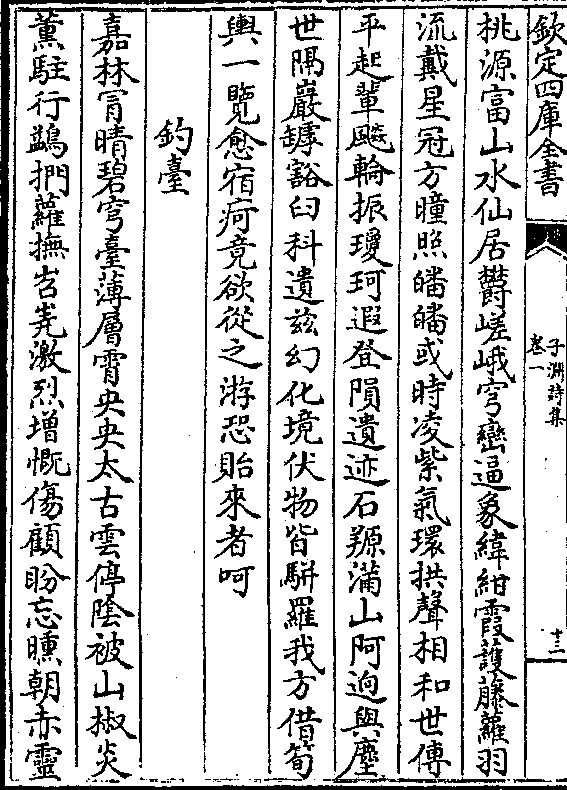 欽定四庫全書
子淵詩集
卷一
十三
桃源富山水仙居欝嵯峨穹巒逼象緯紺霞䕶藤蘿羽
流戴星冠方瞳照皤皤或時凌紫氣環拱聲相和世傳
平起輩飈輪振瓊珂遐登隕遺迹石𤠔滿山阿逈與塵
世隔巖罅豁臼科遺兹幻化境伏物皆駢羅我方借筍
輿一覽愈宿疴竟欲從之游恐貽來者呵
釣臺
嘉林罥晴碧穹臺薄層霄央央太古雲停陰被山椒炎
薰駐行鷁捫蘿撫岧嶤激烈增慨傷顧盼忘曛朝赤靈